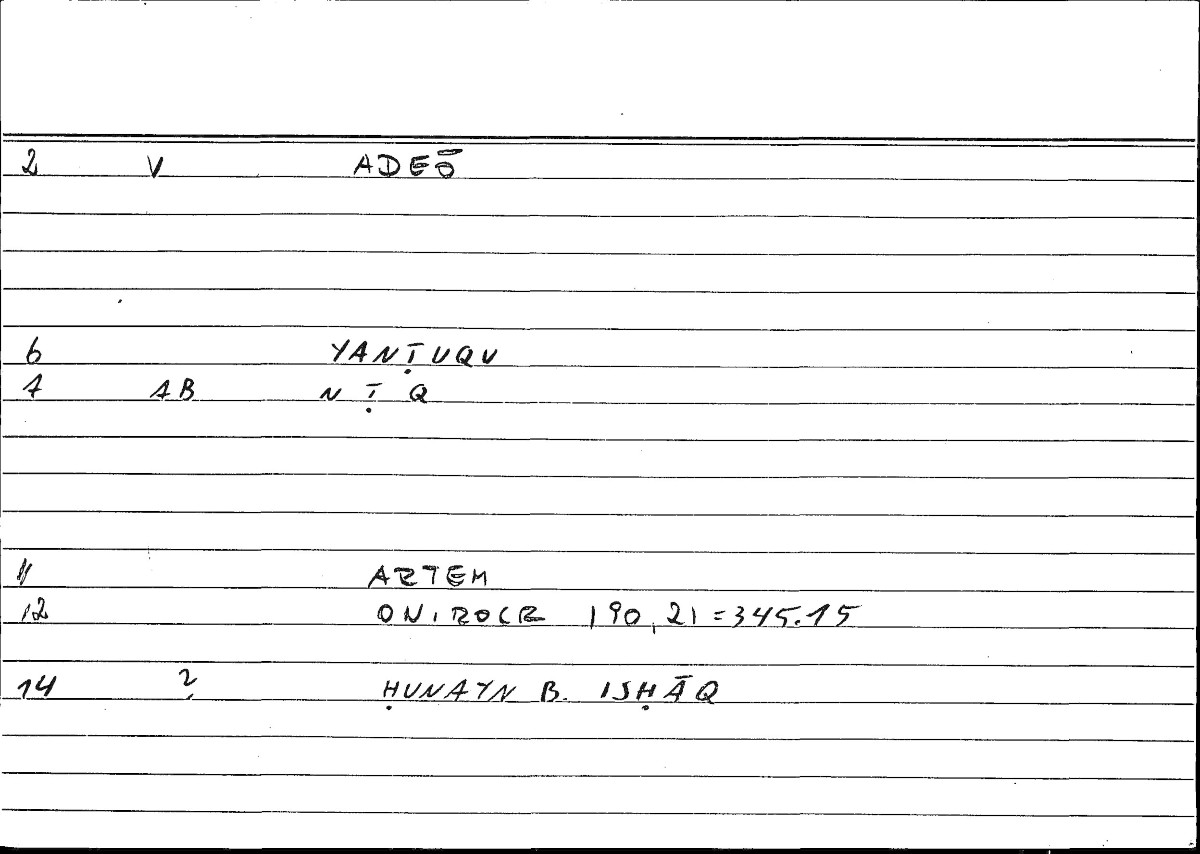 2 V ADEŌ
6 YANṬUQU
7 AB N Ṭ Q
11 ARTEM
12 ONIROCR 190,21=345.15
14 ? ḤUNAYN B. ISḤĀQ